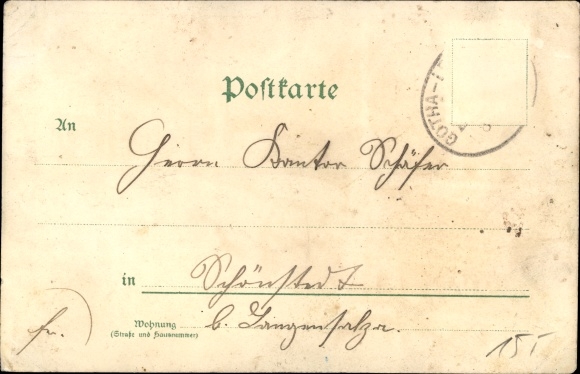 Postkarte
GOTHA-
An
Herrn Kantor Schäfer
in Schönstedt
Wohnung b. Langensalza.
(Straße und Hausnummer)
fr.
15 T